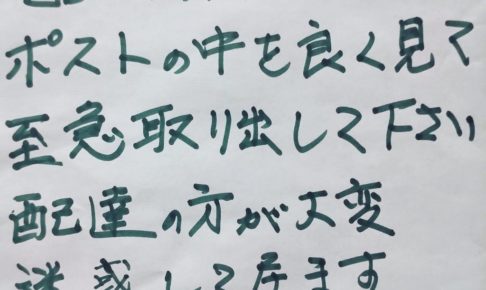 ポストの中を良く見て
至急取り出して下さい
配達の方が大変
迷惑して居ます